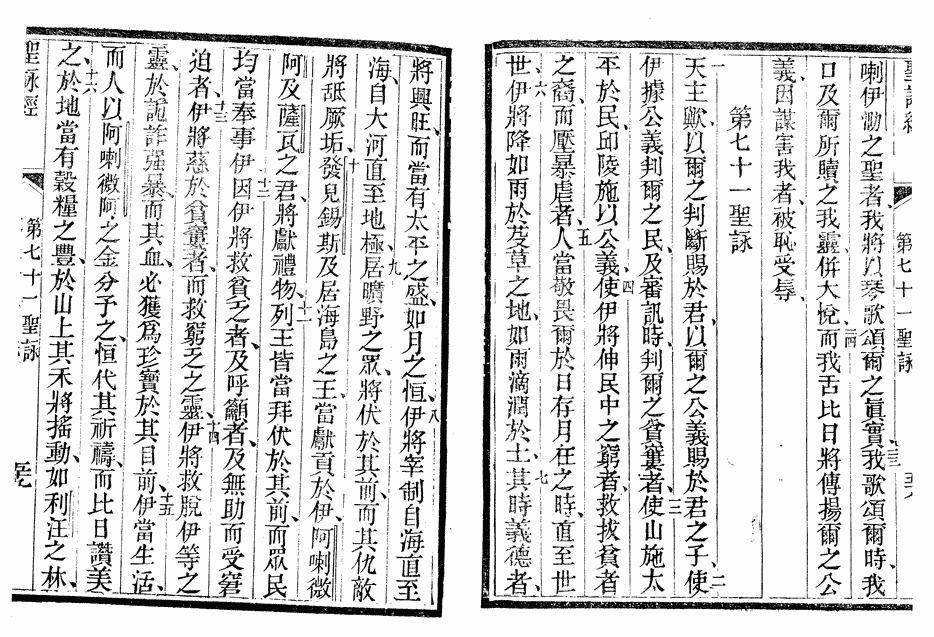 聖詠經
第七十一聖詠
喇伊泐之聖者、我將以琴歌頌爾之眞實、二三我歌頌爾時、我
口及爾所贖之我靈、併大悅、二四而我舌比日將傳揚爾之公
義、因謀害我者、被恥受辱、
第七十一聖詠
一天主歟、以爾之判斷賜於君、以爾之公義賜於君之子、二使
伊據公義判爾之民、及審訊時、判爾之貧窶者、三使山施太
平於民、邱陵施以公義、四使伊將伸民中之窮者、救拔貧者
之裔、而壓暴虐者、五人當敬畏爾於日存月在之時、直至世
世、六伊將降如雨於芟草之地、如雨滴潤於土、七其時義德者、
將興旺、而當有太平之盛、如月之恒、八伊將宰制自海直至
海、自大河直至地極、九居曠野之眾、將伏於其前、而其仇敵
將舐厥垢、十發兒錫斯及居海島之王、當獻貢於伊、阿喇微
阿及薩瓦之君、將獻禮物、十一列王皆當拜伏於其前、而眾民
均當奉事伊、十二因伊將救貧乏者、及呼籲者、及無助而受窘
迫者、十三伊將慈於貧窶者、而救窮乏之靈、十四伊將救脫伊等之
靈於詭詐强暴、而其血必獲爲珍寶於其目前、十五伊當生活、
而人以阿喇微阿之金分予之、恒代其祈禱、而比日讚美
之、十六於地當有穀糧之豐、於山上其禾將搖動、如利汪之林、
聖詠經
第七十一聖詠